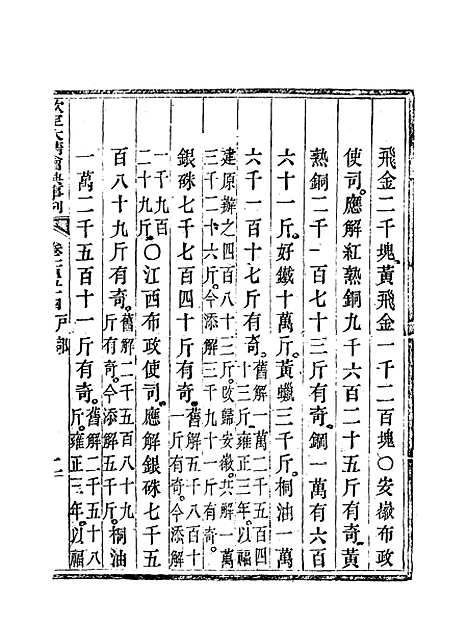 飛金二千塊。黃飛金一千二百塊〇安徽布政
使司。應解紅熟銅九千六百二十五斤有奇。黃
熟銅二千一百七十三斤有奇。鋼一萬有六百
六十一斤。好鐵十萬斤。黃蠟三千斤。桐油一萬
六千一百十七斤有奇。舊解一萬二千五百四十三斤有奇。雍正三年。以福
建原辦之四百八十三斤。改歸安徽。共解一萬
三千二十六斤。今添解三千九十一斤有奇。
銀硃七千七百四十斤有奇。舊解五千七百八十一斤有奇。今添解
一千九百二十九斤。〇江西布政使司。應解銀硃七千五
百八十九斤有奇。舊解二千五百八十九斤有奇。今添解五千斤。桐油
一萬二千五百十一斤有奇。舊解二千五十八斤。雍正三年。以福
欽定大清會典事例 卷二百十四 戶部